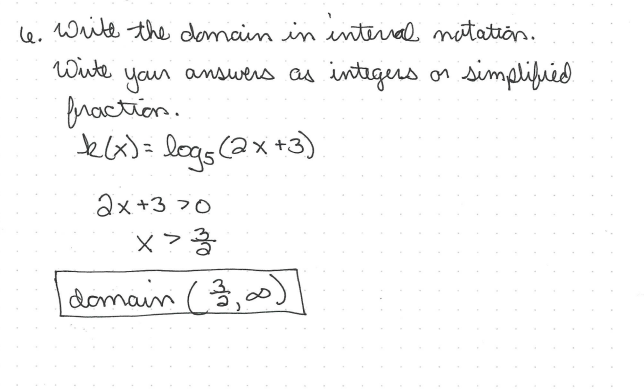 6. Write the domain in interval notation.
Write your answers as integers or simplified
fraction.
k(x) = log₅(2x+3)
2x+3 >0
x > 3/2
domain (3/2, ∞)